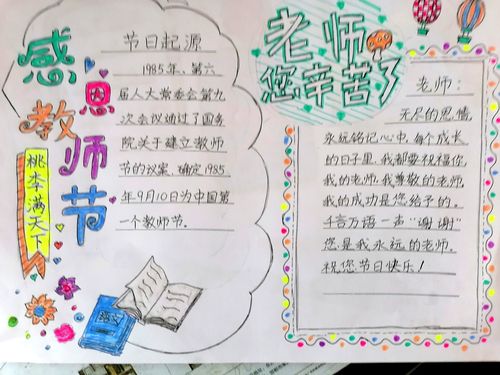 感恩教师节
桃李满天下
节日起源
1985年、第六
届人大常委会第九
次会议通过了国务
院关于建立教师
节的议案、确定1985
年9月10日为中国第
一个教师节.
语文
老师
您辛苦了
老师:
无尽的恩情,
永远铭记心中,每个成长
的日子里,我都要祝福你,
我的老师,我尊敬的老师,
我的成功是您给予的。
千言万语一声"谢谢"
您是我永远的老师.
祝您节日快乐!